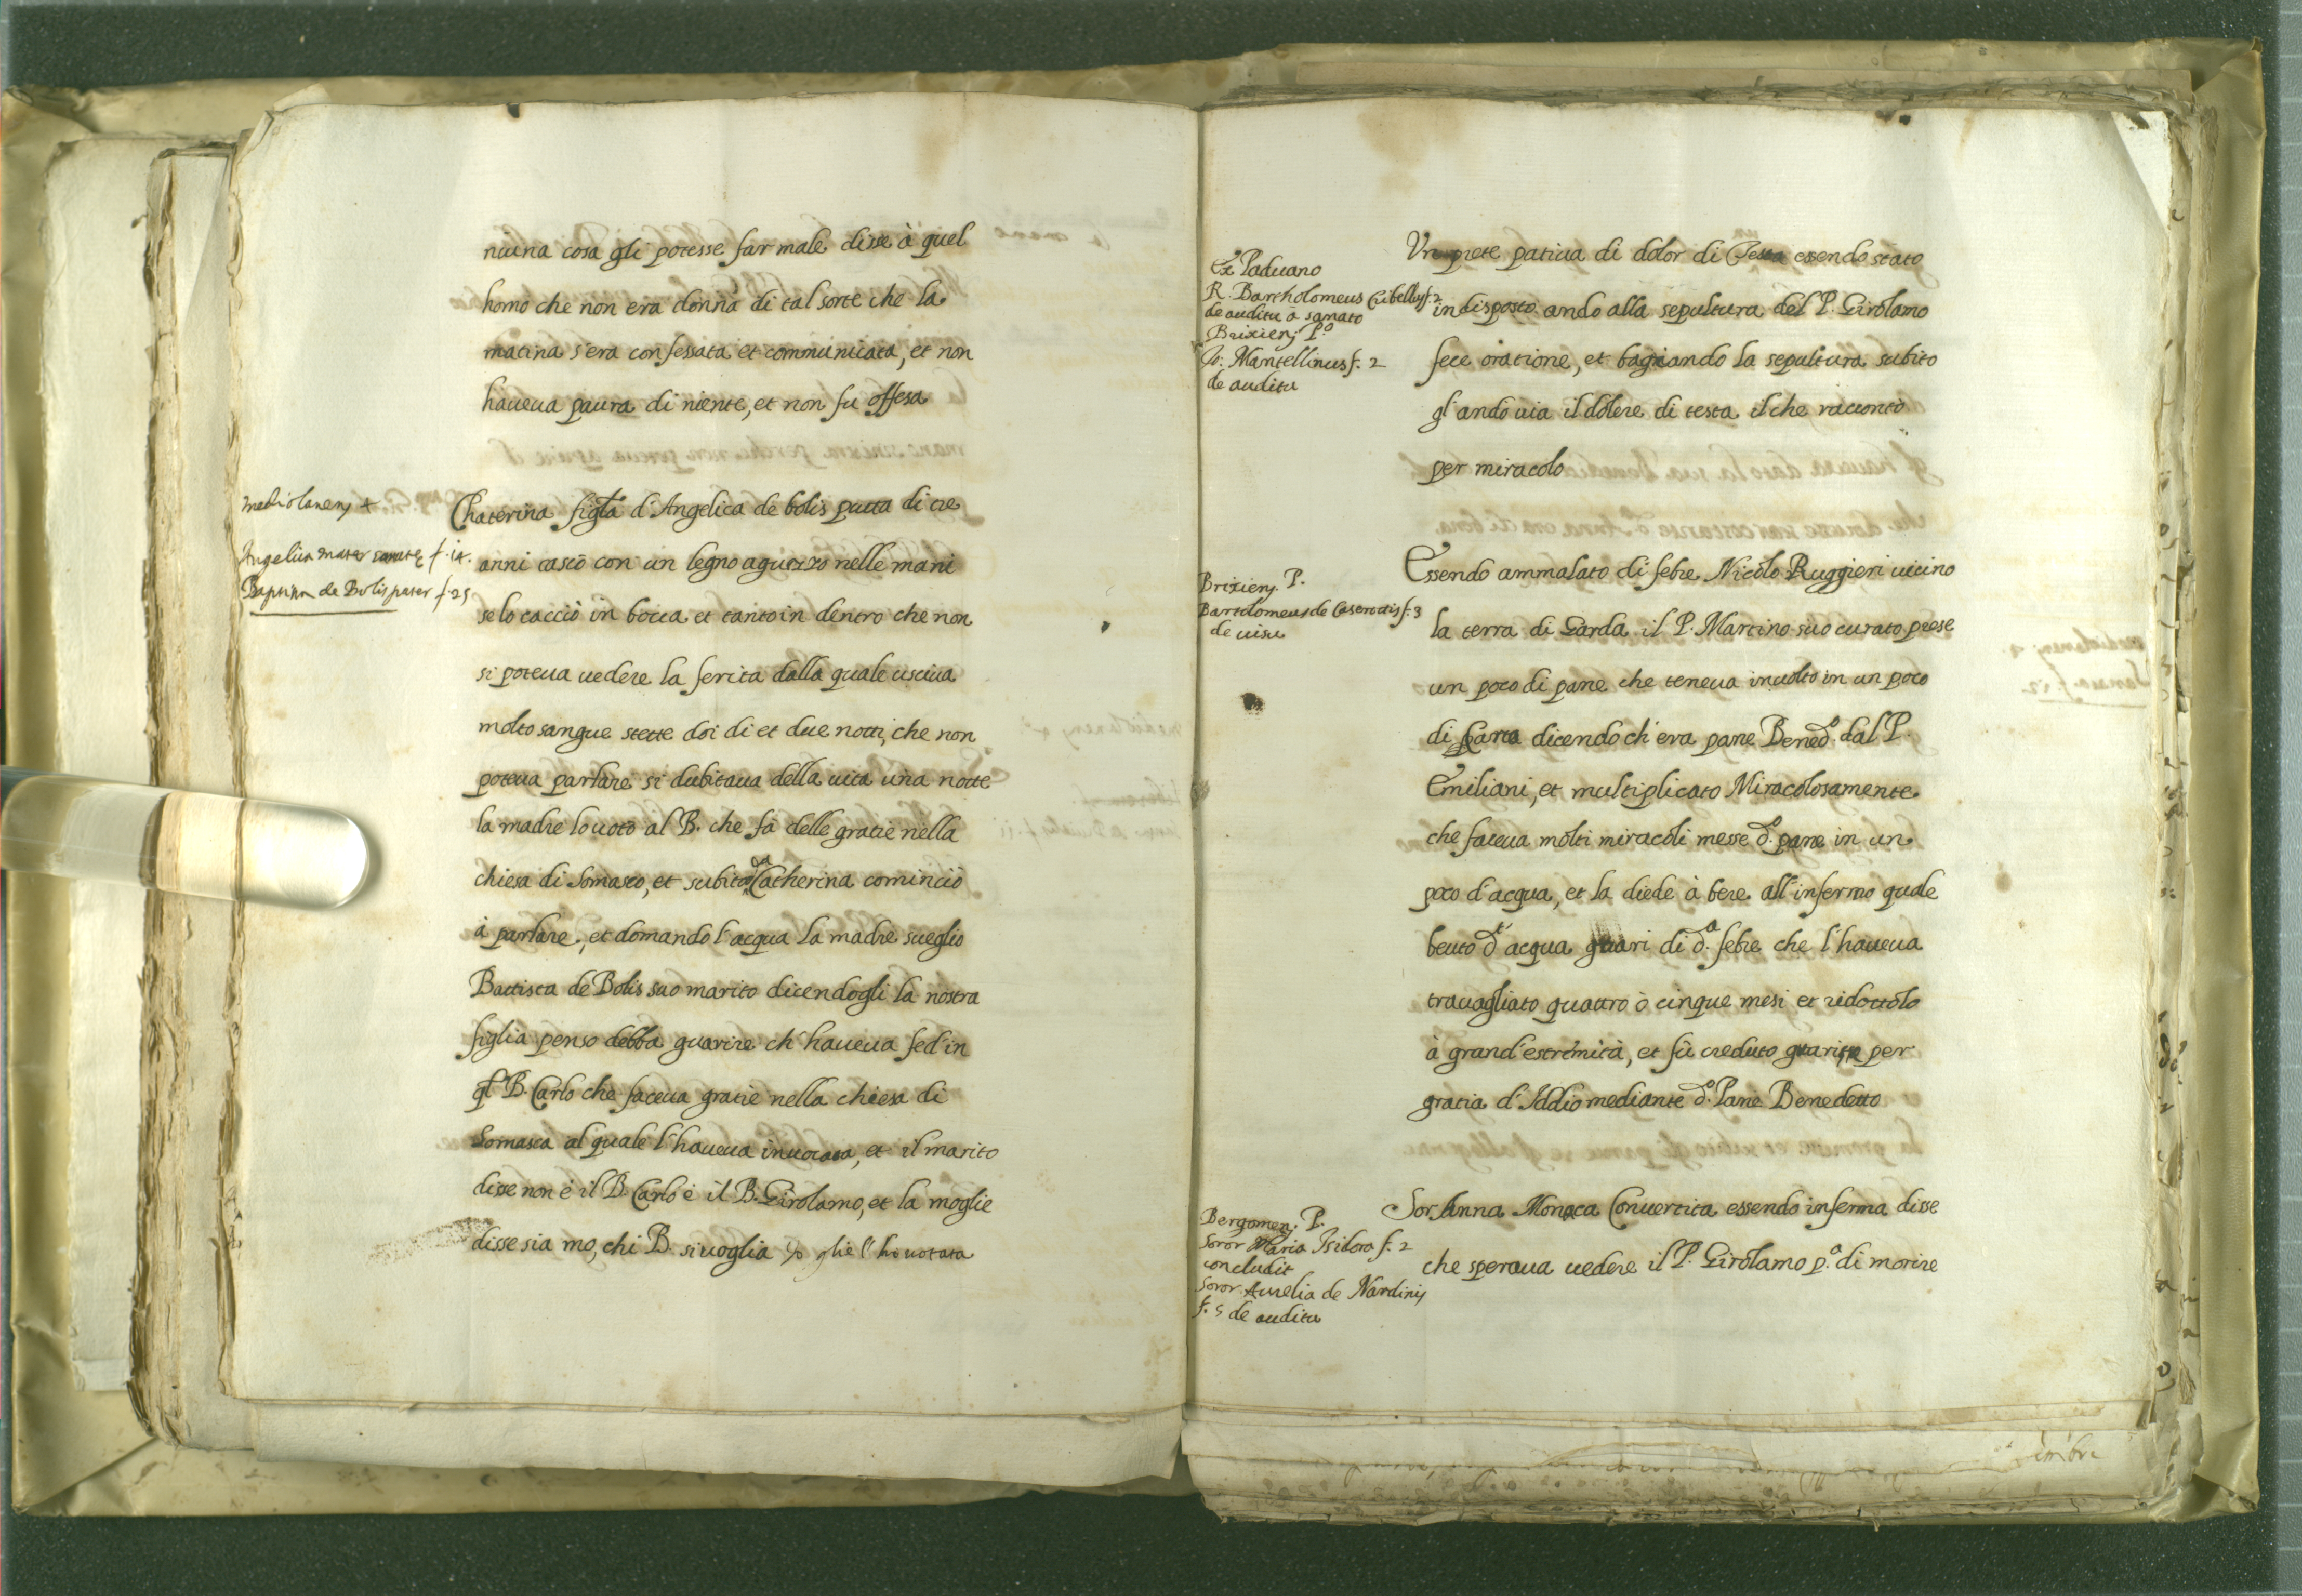 niuna cosa gli potesse far male disse à quel
homo che non era donna di tal sorte che la
matina s'era confessata et communicata, et non
haueua paura di niente, et non fu offesa
Mediolanens 4
Angelica mater sanatę f. 14.
Baptista de Bolis pater f. 25
Chaterina figla d'Angelica de bolis putta di tre
anni cascò con un legno aguzzo nelle mani
se lo cacciò in bocca et tanto in dentro che non
si poteua uedere la ferita dalla quale usciua
molto sangue stette doi di et due notti, che non
poteua parlare si dubitaua della uita una notte
la madre lo uotò al B. che fa delle gratie nella
chiesa di Somasco, et subito da Catherina cominciò
à parlare, et domandò l'acqua la madre sueglio
Battista de Bolis suo marito dicendogli la nostra
figlia penso debba guarire ch'haueua fed' in
ql B. Carlo che faceua gratie nella chiesa di
Somasca al quale l'haueua inuocata, et il marito
disse non é il B. Carlo é il B. Girolamo, et la moglie
disse sia mo, chi B. si uoglia Io glie l'ho uotata
Ex Paduano
R. Bartholomeus Cribellus f. 2
de auditu à sanato
Brixiens P.o
Jo: Mantellinus f. 2
de auditu
Un prete patiua di dolor di Testa essendo stato
indisposto andò alla sepultura del P. Girolamo
fece oratione, et bagiando la sepultura subito
gl'andò uia il dolere di testa il che raccontò
per miracolo
Brixiens. P.
Bartolomeus de Casenattis f. 3
de uisu
Essendo ammalato di febre Nicolo Ruggieri uicino
la terra di Garda il P. Martino suo curato prese
un poco di pane che teneua inuolto in un poco
di Carta dicendo ch'era pane Bened.o dal P.
Emiliani, et multiplicato Miracolosamente
che faceua molti miracoli messe d.o pane in un
poco d'acqua, et la diede à bere all'infermo quale
beuto d.a acqua guari di d.a febre che l'haueua
trauagliato quattro ò cinque mesi et ridottolo
à grand'estremità, et fù creduto guarisse per
gratia d'Iddio mediante d.o Pane Benedetto
Bergomens. P.
Soror Maria Isidora f. 2
concludit
Soror Aurelia de Nardinis
f. 5 de auditu
Sor Anna Monaca Conuertita essendo inferma disse
che speraua uedere il P. Girolamo p.a di morire